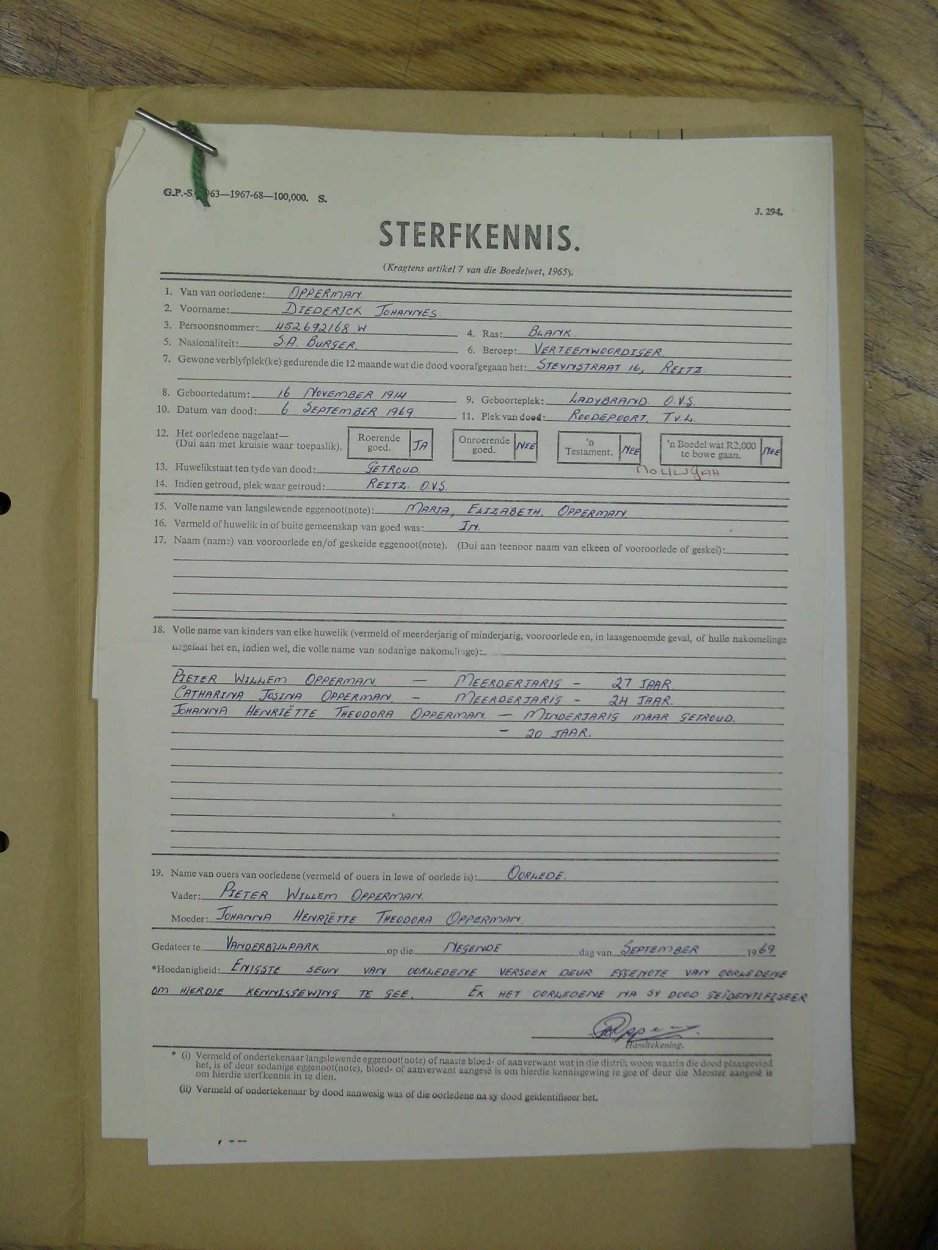 G.P.-S. 963—1967-68—100,000. S.
J. 294.
STERFKENNIS.
(Kragtens artikel 7 van die Boedelwet, 1965).
1. Van van oorledene: OPPERMAN.
2. Voorname: DIEDERICK JOHANNES.
3. Persoonsnommer: 452692168 W 4. Ras: BLANK.
5. Nasionaliteit: S.A. BURGER. 6. Beroep: VERTEENWOORDIGER.
7. Gewone verblyfplek(ke) gedurende die 12 maande wat die dood voorafgegaan het: STEYNSTRAAT 16, REITZ.
8. Geboortedatum: 16 NOVEMBER 1914 9. Geboorteplek: LADYBRAND. O.V.S.
10. Datum van dood: 6 SEPTEMBER 1969 11. Plek van dood: ROODEPOORT. TVL.
12. Het oorledene nagelaat—
(Dui aan met kruisie waar toepaslik).
Roerende goed. JA
Onroerende goed. NEE
'n Testament. NEE
'n Boedel wat R2,000 te bowe gaan. NEE
13. Huwelikstaat ten tyde van dood: GETROUD.
14. Indien getroud, plek waar getroud: REITZ. O.V.S.
15. Volle name van langslewende eggenoot(note): MARIA, ELIZABETH. OPPERMAN.
16. Vermeld of huwelik in of buite gemeenskap van goed was: IN.
17. Naam (name) van vooroorlede en/of geskeide eggenoot(note). (Dui aan teenoor naam van elkeen of vooroorlede of geskei):
18. Volle name van kinders van elke huwelik (vermeld of meerderjarig of minderjarig, vooroorlede en, in laasgenoemde geval, of hulle nakomelinge
nagelaat het en, indien wel, die volle name van sodanige nakomelinge):
PIETER WILLEM OPPERMAN — MEERDERJARIG - 27 JAAR.
CATHARINA JOSINA OPPERMAN - MEERDERJARIG - 24 JAAR.
JOHANNA HENRIËTTE THEODORA OPPERMAN — MINDERJARIG MAAR GETROUD.
- 20 JAAR.
19. Name van ouers van oorledene (vermeld of ouers in lewe of oorlede is): OORLEDE.
Vader: PIETER WILLEM OPPERMAN.
Moeder: JOHANNA HENRIËTTE THEODORA OPPERMAN.
Gedateer te VANDERBIJLPARK op die NEGENDE dag van SEPTEMBER 1969
*Hoedanigheid: ENIGSTE SEUN VAN OORLEDENE VERSOEK DEUR EGGENOTE VAN OORLEDENE
OM HIERDIE KENNISGEWING TE GEE. EK HET OORLEDENE NA SY DOOD GEÏDENTIFISEER
Handtekening.
* (i) Vermeld of ondertekenaar langslewende eggenoot(note) of naaste bloed- of aanverwant wat in die distrik woon waarin die dood plaasgevind
het, is of deur sodanige eggenoot(note), bloed- of aanverwant aangesê is om hierdie kennisgewing te gee of deur die Meester aangesê is
om hierdie sterfkennis in te dien.
(ii) Vermeld of ondertekenaar by dood aanwesig was of die oorledene na sy dood geïdentifiseer het.